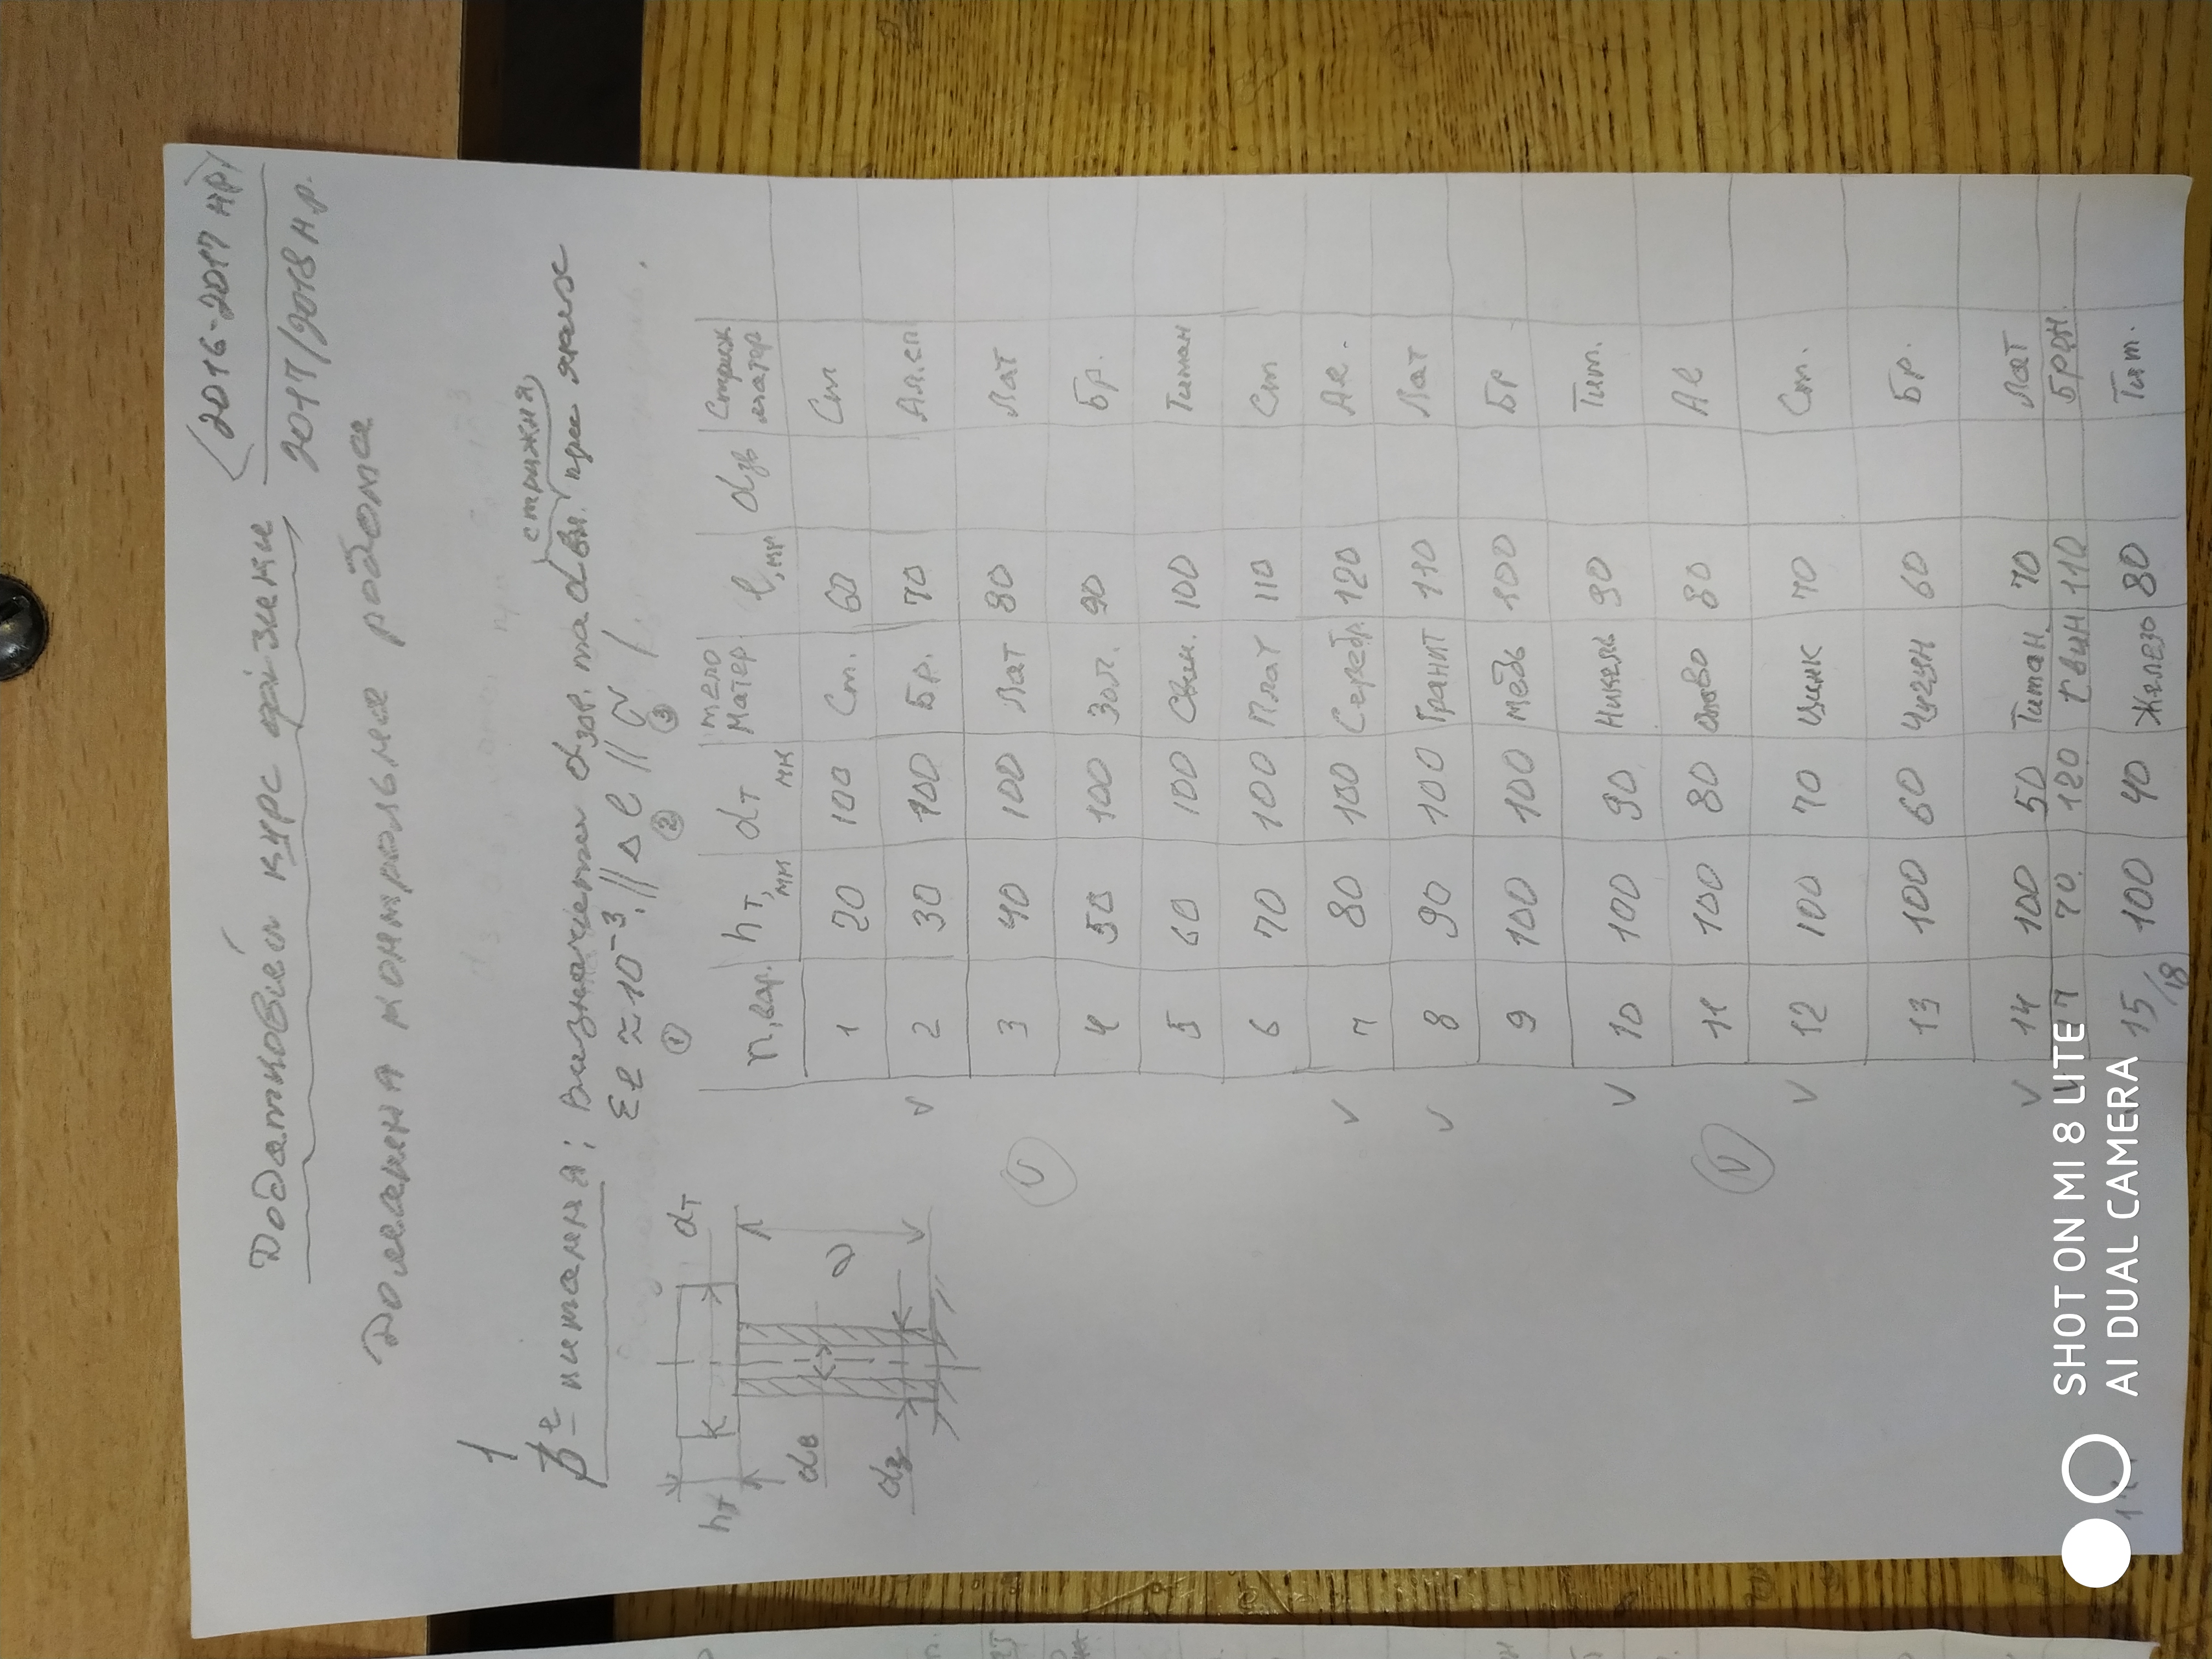 Додатковий курс фізики
(2016-2017 нр)
2017/2018 н.р.
Домашня контрольна робота
1
питання: Визначити dзов. та dвн. при яких
стрижня
εℓ ≈ 10⁻³. // Δℓ // σ /
① ② ③
hт dт
dв ℓ
dз
n, вар. hт, мм dт мм тело Матер. ℓ, мм dзв Стриж матер
1 20 100 Ст. 60 Ст
v 2 30 100 Бр. 70 Ал.сп
3 40 100 Лат 80 Лат
4 50 100 Зол. 90 Бр.
5 60 100 Свин. 100 Титан
6 70 100 Плат 110 Ст
v 7 80 100 Серебр. 120 Ал.
v 8 90 100 Гранит 110 Лат
9 100 100 Медь 100 Бр
v 10 100 90 Никель 90 Тит.
11 100 80 Олово 80 Al
v 12 100 70 Цинк 70 Ст.
13 100 60 Чугун 60 Бр.
v 14 100 50 Титан. 70 Лат
17 70 120 Свин 110 Брон.
15/18 100 40 Железо 80 Тит.
SHOT ON MI 8 LITE
AI DUAL CAMERA